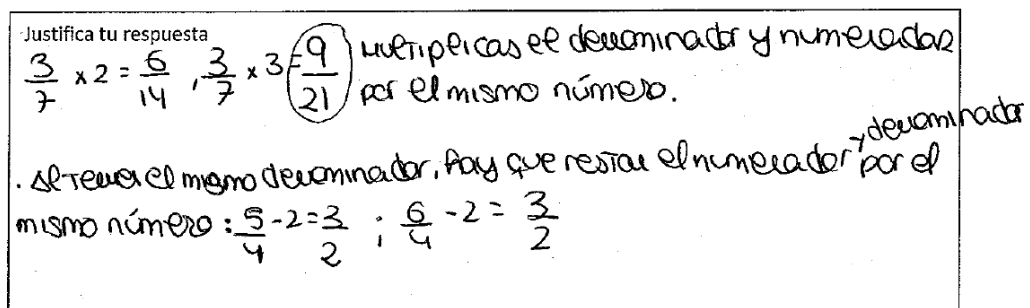 Justifica tu respuesta
3/7 x 2 = 6/14 , 3/7 x 3 = 9/21 multiplicas el denominador y numerador
por el mismo número.
y denominador
. Al tener el mismo denominador, hay que restar el numerador por el
mismo número : 5/4 - 2 = 3/2 ; 6/4 - 2 = 3/2